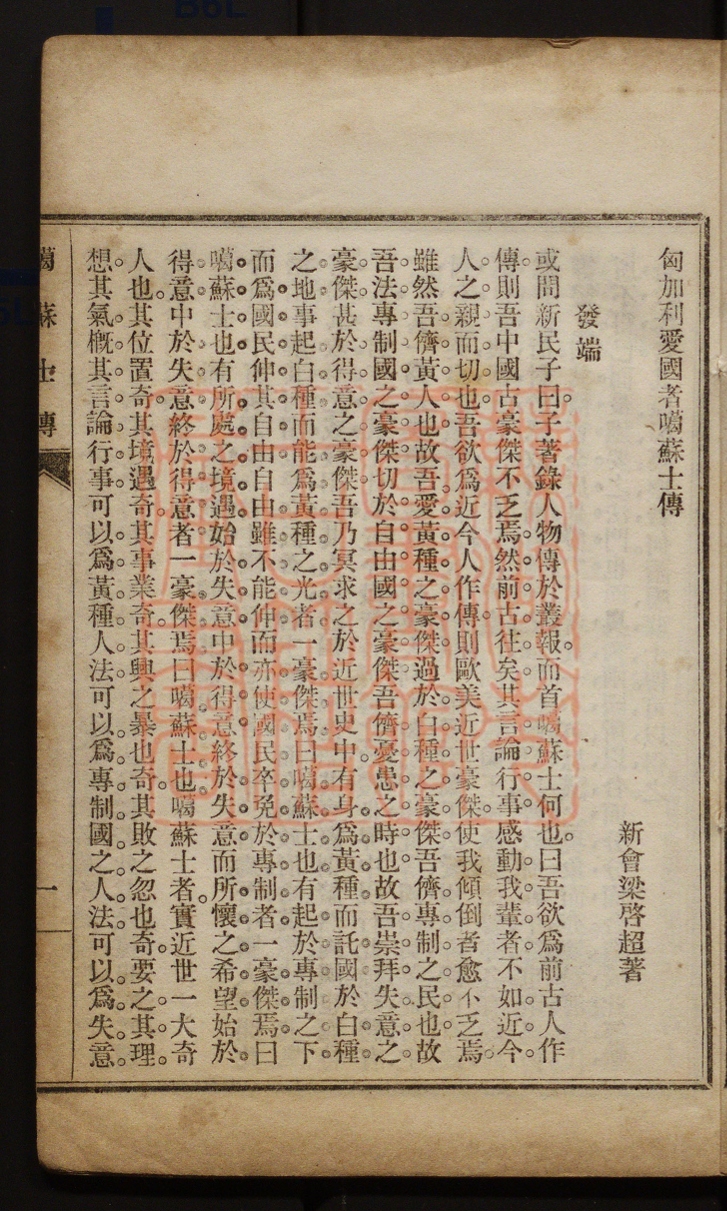 匈加利愛國者噶蘇士傳
新會梁啓超著
發端
或問新民子曰子著錄人物傳於叢報而首噶蘇士何也曰吾欲爲前古人作
傳則吾中國古豪傑不乏焉然前古往矣其言論行事感動我輩者不如近今
人之親而切也吾欲爲近今人作傳則歐美近世豪傑使我傾倒者愈不乏焉
雖然吾儕黃人也故吾愛黃種之豪傑過於白種之豪傑吾儕專制之民也故
吾法專制國之豪傑切於自由國之豪傑吾儕憂患之時也故吾崇拜失意之
豪傑甚於得意之豪傑吾乃冥求之於近世史中有身爲黃種而託國於白種
之地事起白種而能爲黃種之光者一豪傑焉曰噶蘇士也有起於專制之下
而爲國民伸其自由自由雖不能伸而亦使國民卒免於專制者一豪傑焉曰
噶蘇士也有所處之境遇始於失意中於得意終於失意而所懷之希望始於
得意中於失意終於得意者一豪傑焉曰噶蘇士也噶蘇士者實近世一大奇
人也其位置奇其境遇奇其事業奇其興之暴也奇其敗之忽也奇要之其理
想其氣概其言論行事可以爲黃種人法可以爲專制國之人法可以爲失意
噶蘇士傳
一